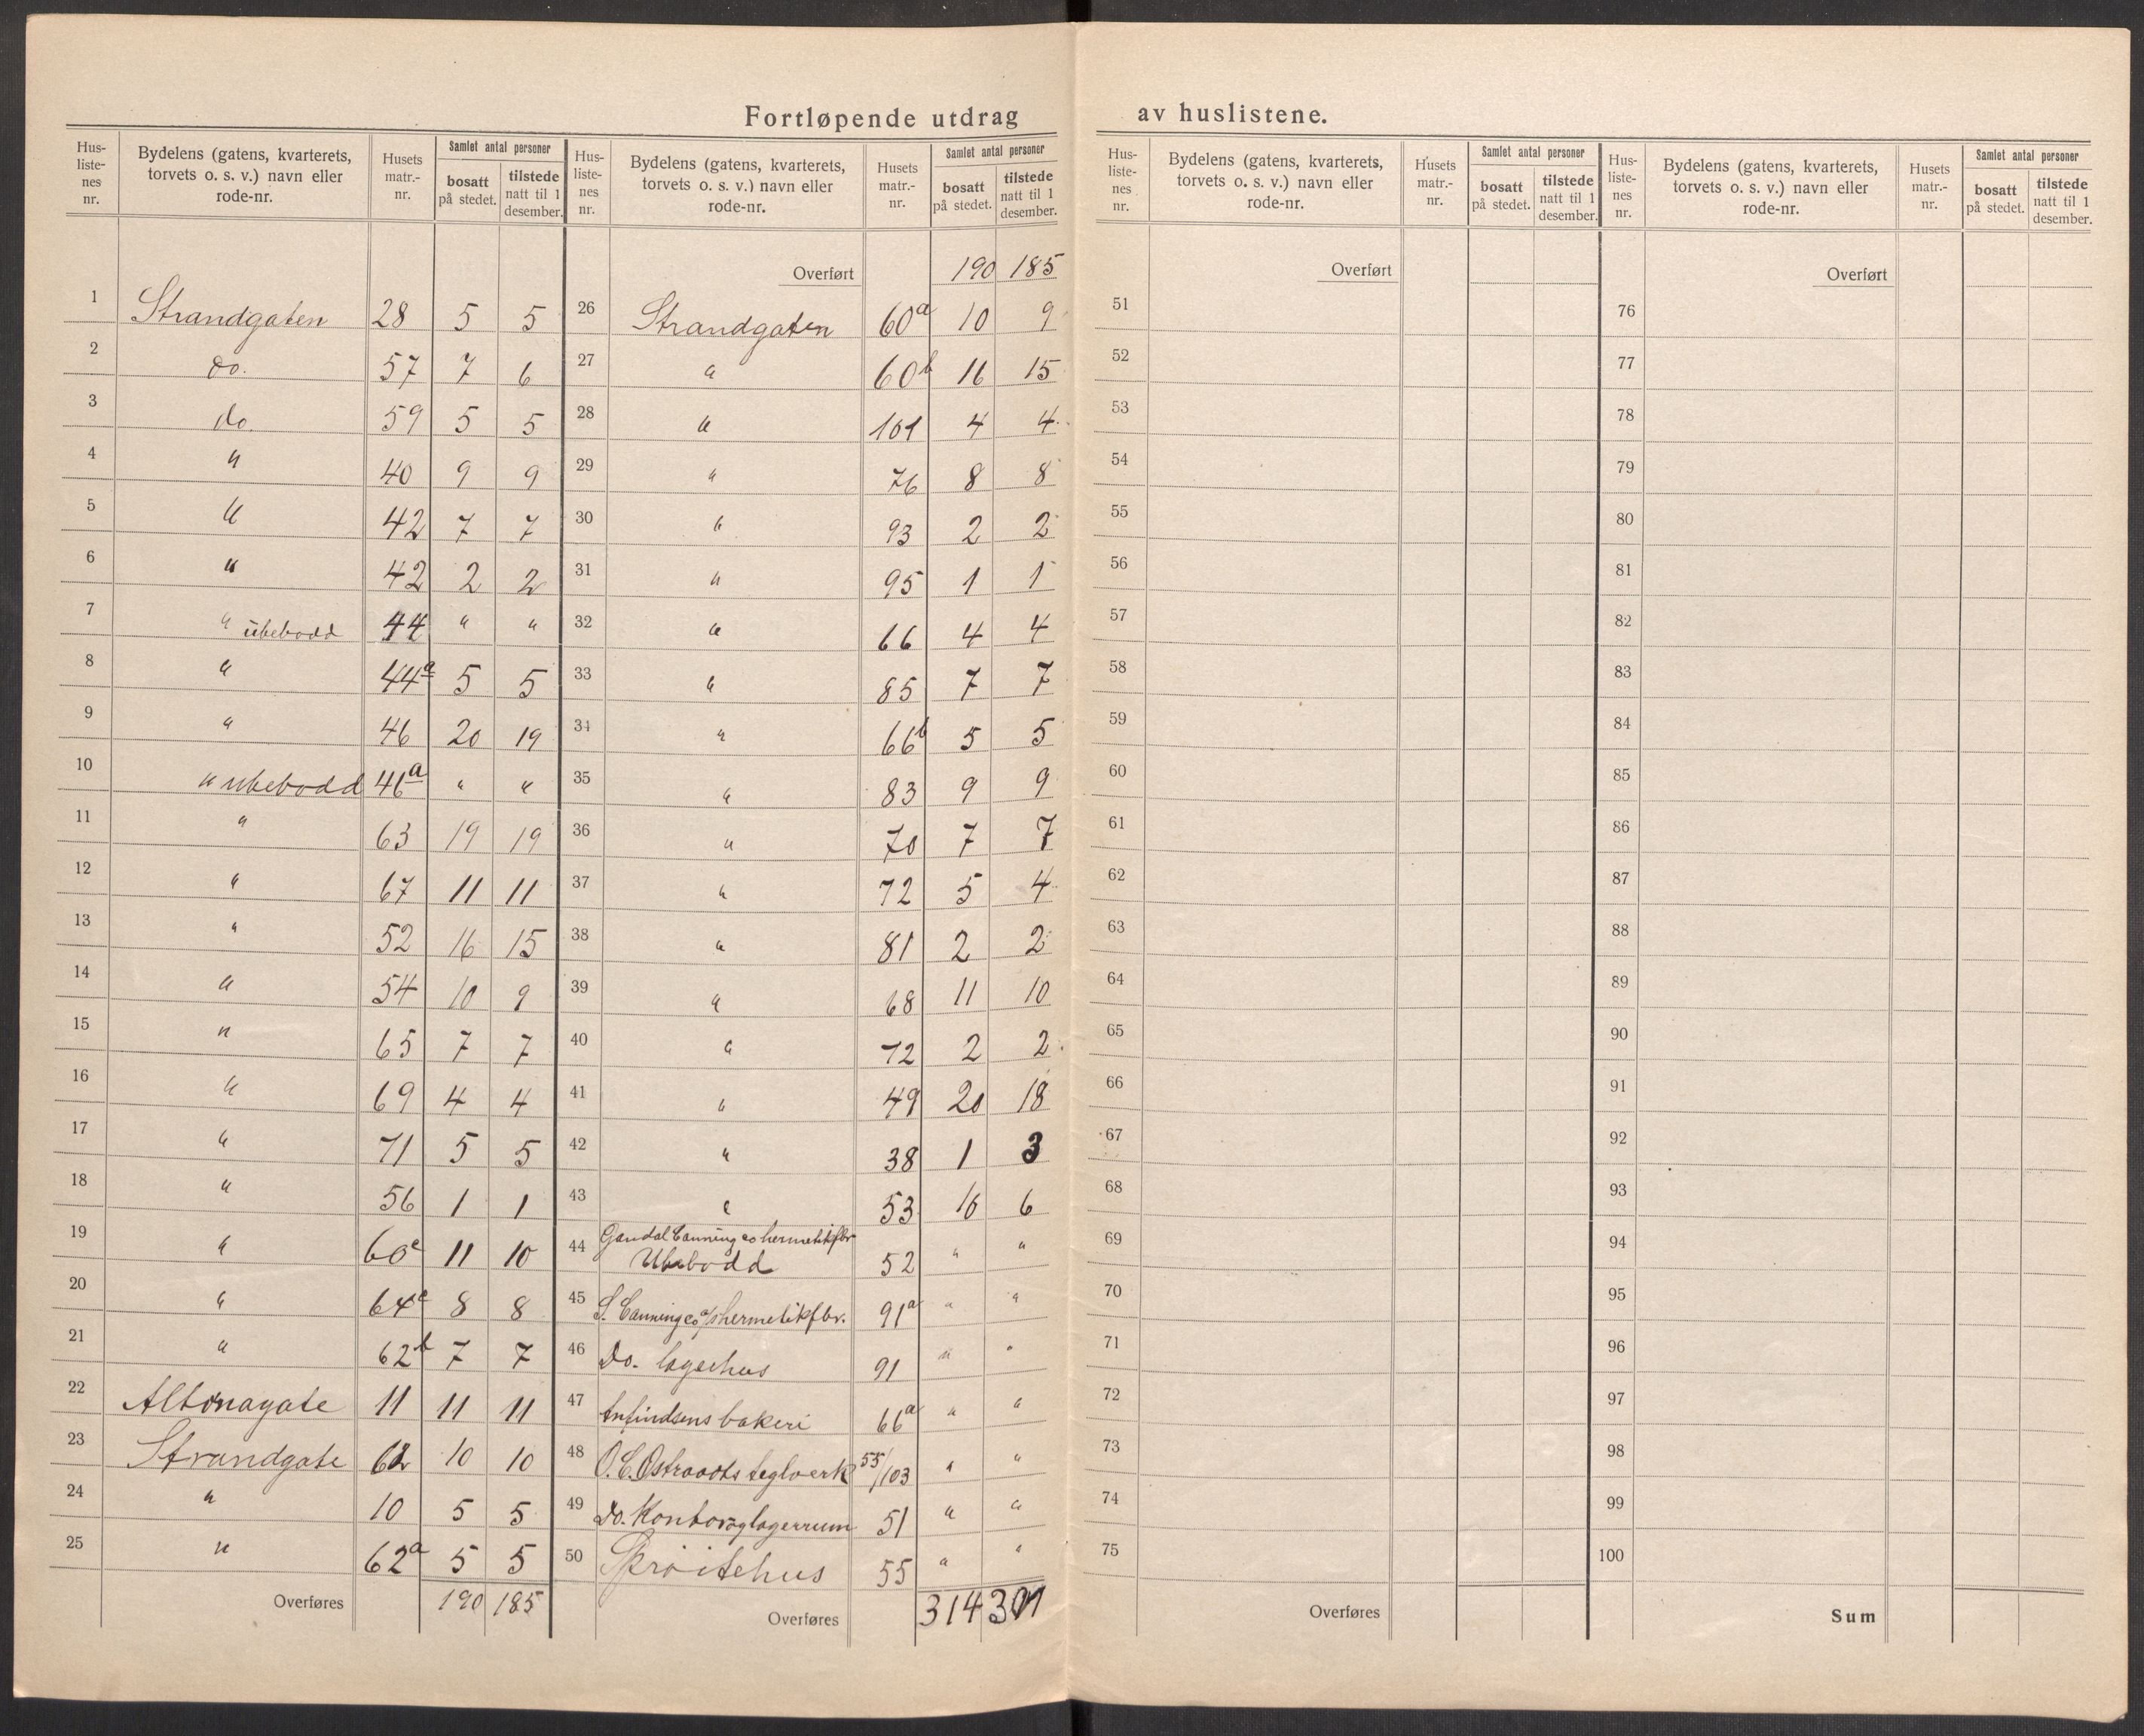 Fortløpende utdrag av huslistene.
Hus-liste-nes nr. | Bydelens (gatens, kvarterets, torvets o. s. v.) navn eller rode-nr. | Husets matr.-nr. | Samlet antal personer | bosatt på stedet. | tilstede natt til 1 desember.
1 Strandgaten 28 5 5
2 do. 57 7 6
3 do. 59 5 5
4 " 40 9 9
5 " 42 7 7
6 " 42 2 2
7 " ubebodd 44 " "
8 " 44a 5 5
9 " 46 20 19
10 " ubebodd 46a " "
11 " 63 19 19
12 " 67 11 11
13 " 52 16 15
14 " 54 10 9
15 " 65 7 7
16 " 69 4 4
17 " 71 5 5
18 " 56 1 1
19 " 60c 11 10
20 " 64a 8 8
21 " 62b 7 7
22 Altonagate 11 11 11
23 Strandgate 62 10 10
24 " 10 5 5
25 " 62a 5 5
Overføres 190 185
Hus-liste-nes nr. | Bydelens (gatens, kvarterets, torvets o. s. v.) navn eller rode-nr. | Husets matr.-nr. | Samlet antal personer | bosatt på stedet. | tilstede natt til 1 desember.
Overført 190 185
26 Strandgaten 60a 10 9
27 " 60b 16 15
28 " 101 4 4
29 " 76 8 8
30 " 93 2 2
31 " 95 1 1
32 " 66 4 4
33 " 85 7 7
34 " 66b 5 5
35 " 83 9 9
36 " 70 7 7
37 " 72 5 4
38 " 81 2 2
39 " 68 11 10
40 " 72 2 2
41 " 49 20 18
42 " 38 1 3
43 " 53 10 6
44 Gandal Canning co hermetikfbr
Ubebodd 52 " "
45 S. Canning co a/s hermetikfbr. 91a " "
46 Do. lagerhus 91 " "
47 Anfindsens bakeri 66a " "
48 O.C. Ostraadts teglverk 55/103 " "
49 Do. Kontor og lagerrum 51 " "
50 Sprøitehus 55 " "
Overføres 314 301
Hus-liste-nes nr. | Bydelens (gatens, kvarterets, torvets o. s. v.) navn eller rode-nr. | Husets matr.-nr. | Samlet antal personer | bosatt på stedet. | tilstede natt til 1 desember.
Overført
51
52
53
54
55
56
57
58
59
60
61
62
63
64
65
66
67
68
69
70
71
72
73
74
75
Overføres
Hus-liste-nes nr. | Bydelens (gatens, kvarterets, torvets o. s. v.) navn eller rode-nr. | Husets matr.-nr. | Samlet antal personer | bosatt på stedet. | tilstede natt til 1 desember.
Overført
76
77
78
79
80
81
82
83
84
85
86
87
88
89
90
91
92
93
94
95
96
97
98
99
100
Sum